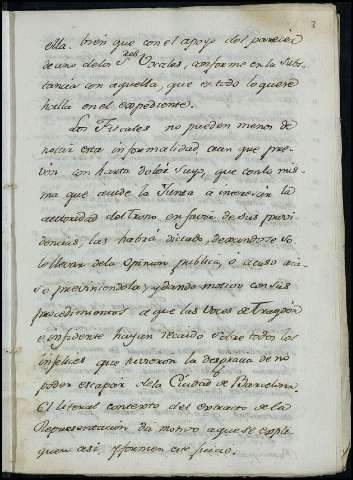 3
ella: bien que con el apoyo del parecer
de uno de los S.res Vocales, conforme en la subs-
tancia con aquella, que es todo lo que se
halla en el expediente.
Los Fiscales no pueden menos de
notar esta informalidad aun que pre-
vén con harto dolor suyo, que con la mis-
ma que acude la Junta a interesar la
autoridad del Trono en favor de sus provi-
dencias, las habrá dictado, dexandose so-
lo llevar de la opinion publica, ó acaso aca-
so previniendola, y dando motivo con sus
procedimientos a que las voces de Traydor
e infidente hayan recaido sobre todos los
infelices que tuvieron la desgracia de no
poder escapar de la Ciudad de Barcelona.
El literal contexto del extracto de la
Representacion da motivo a que se expli-
quen asi, y formen este juicio.